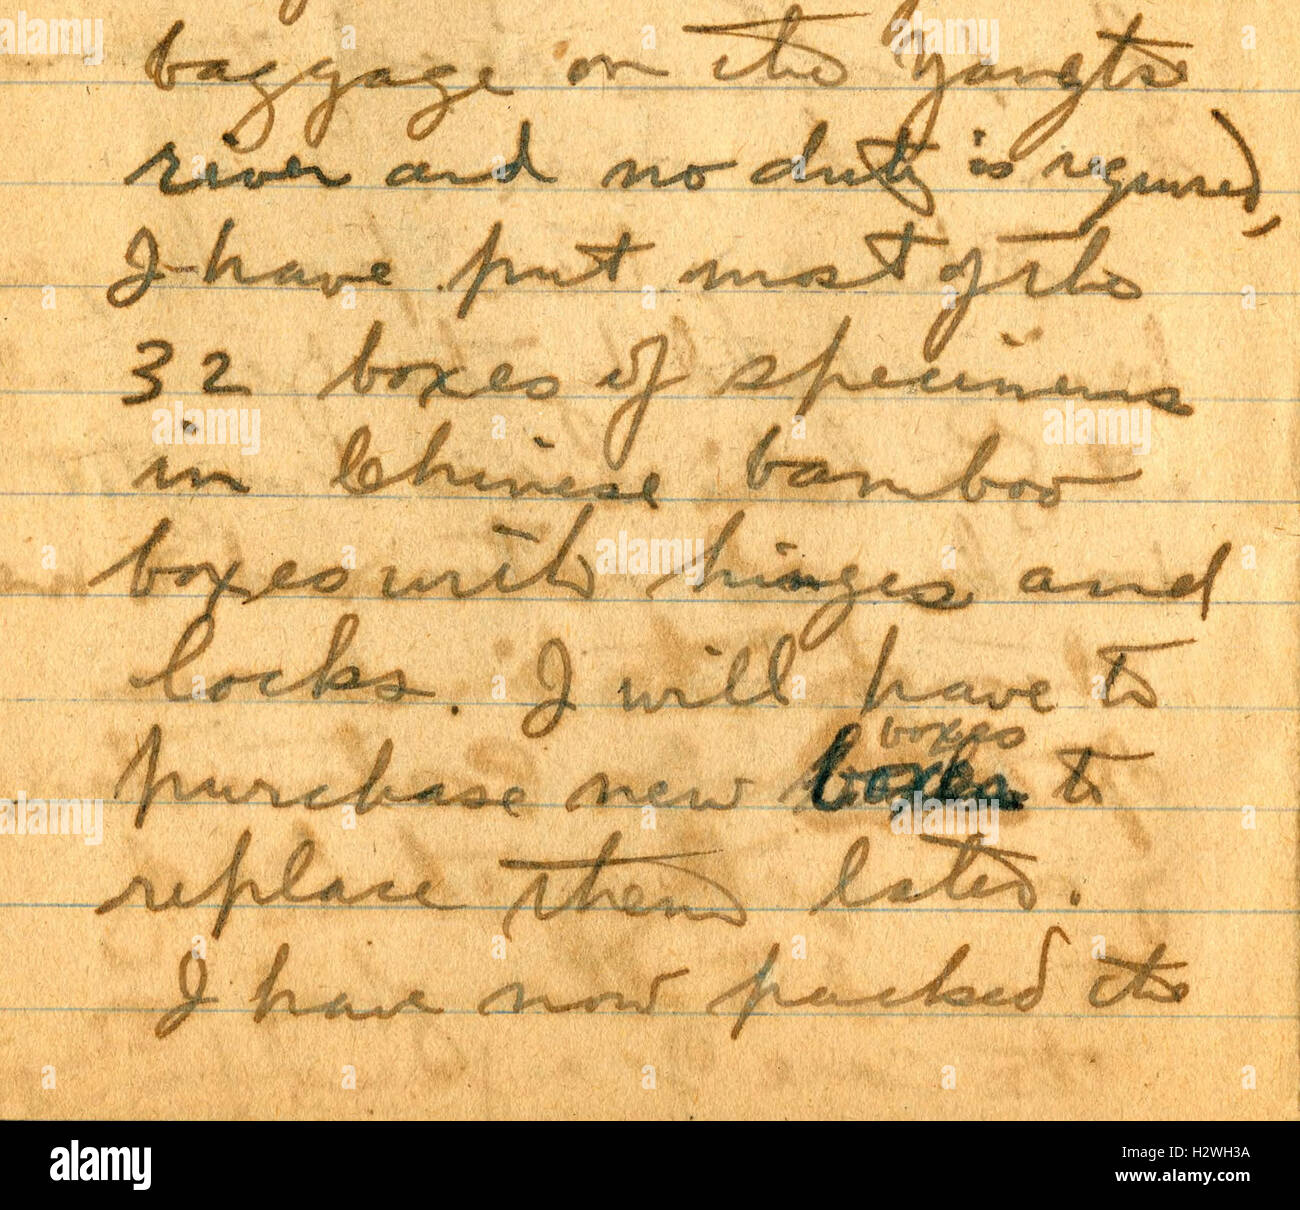 baggage on the Yangtse
river and no duty is required),
I have put most of the
32 boxes of specimens
in Chinese bamboo
boxes with hinges and
locks. I will have to
boxes
purchase new boxes to
replace them later.
I have now packed the
alamy
Image ID: H2WH3A
www.alamy.com